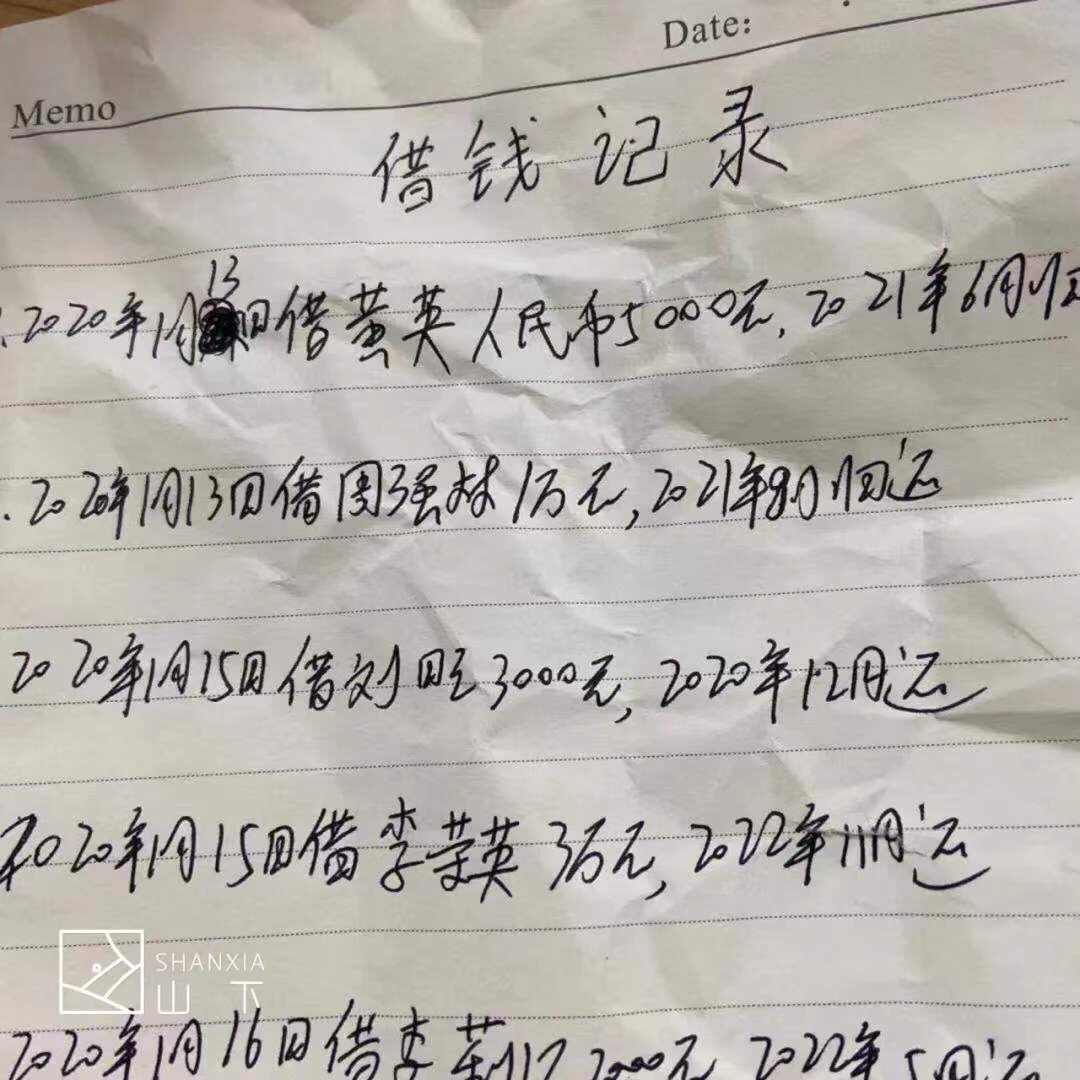 Date:
Memo
借钱记录
.2020年1月13日借黄英人民币5000元,2021年6月1日
.2020年1月13日借周强林1万元,2021年8月1日还
2020年1月15日借刘旺3000元,2020年12月还
2020年1月15日借李荣英3万元,2022年11月还
SHANXIA
山下
2020年1月16日借李 2000元 2022年5月还